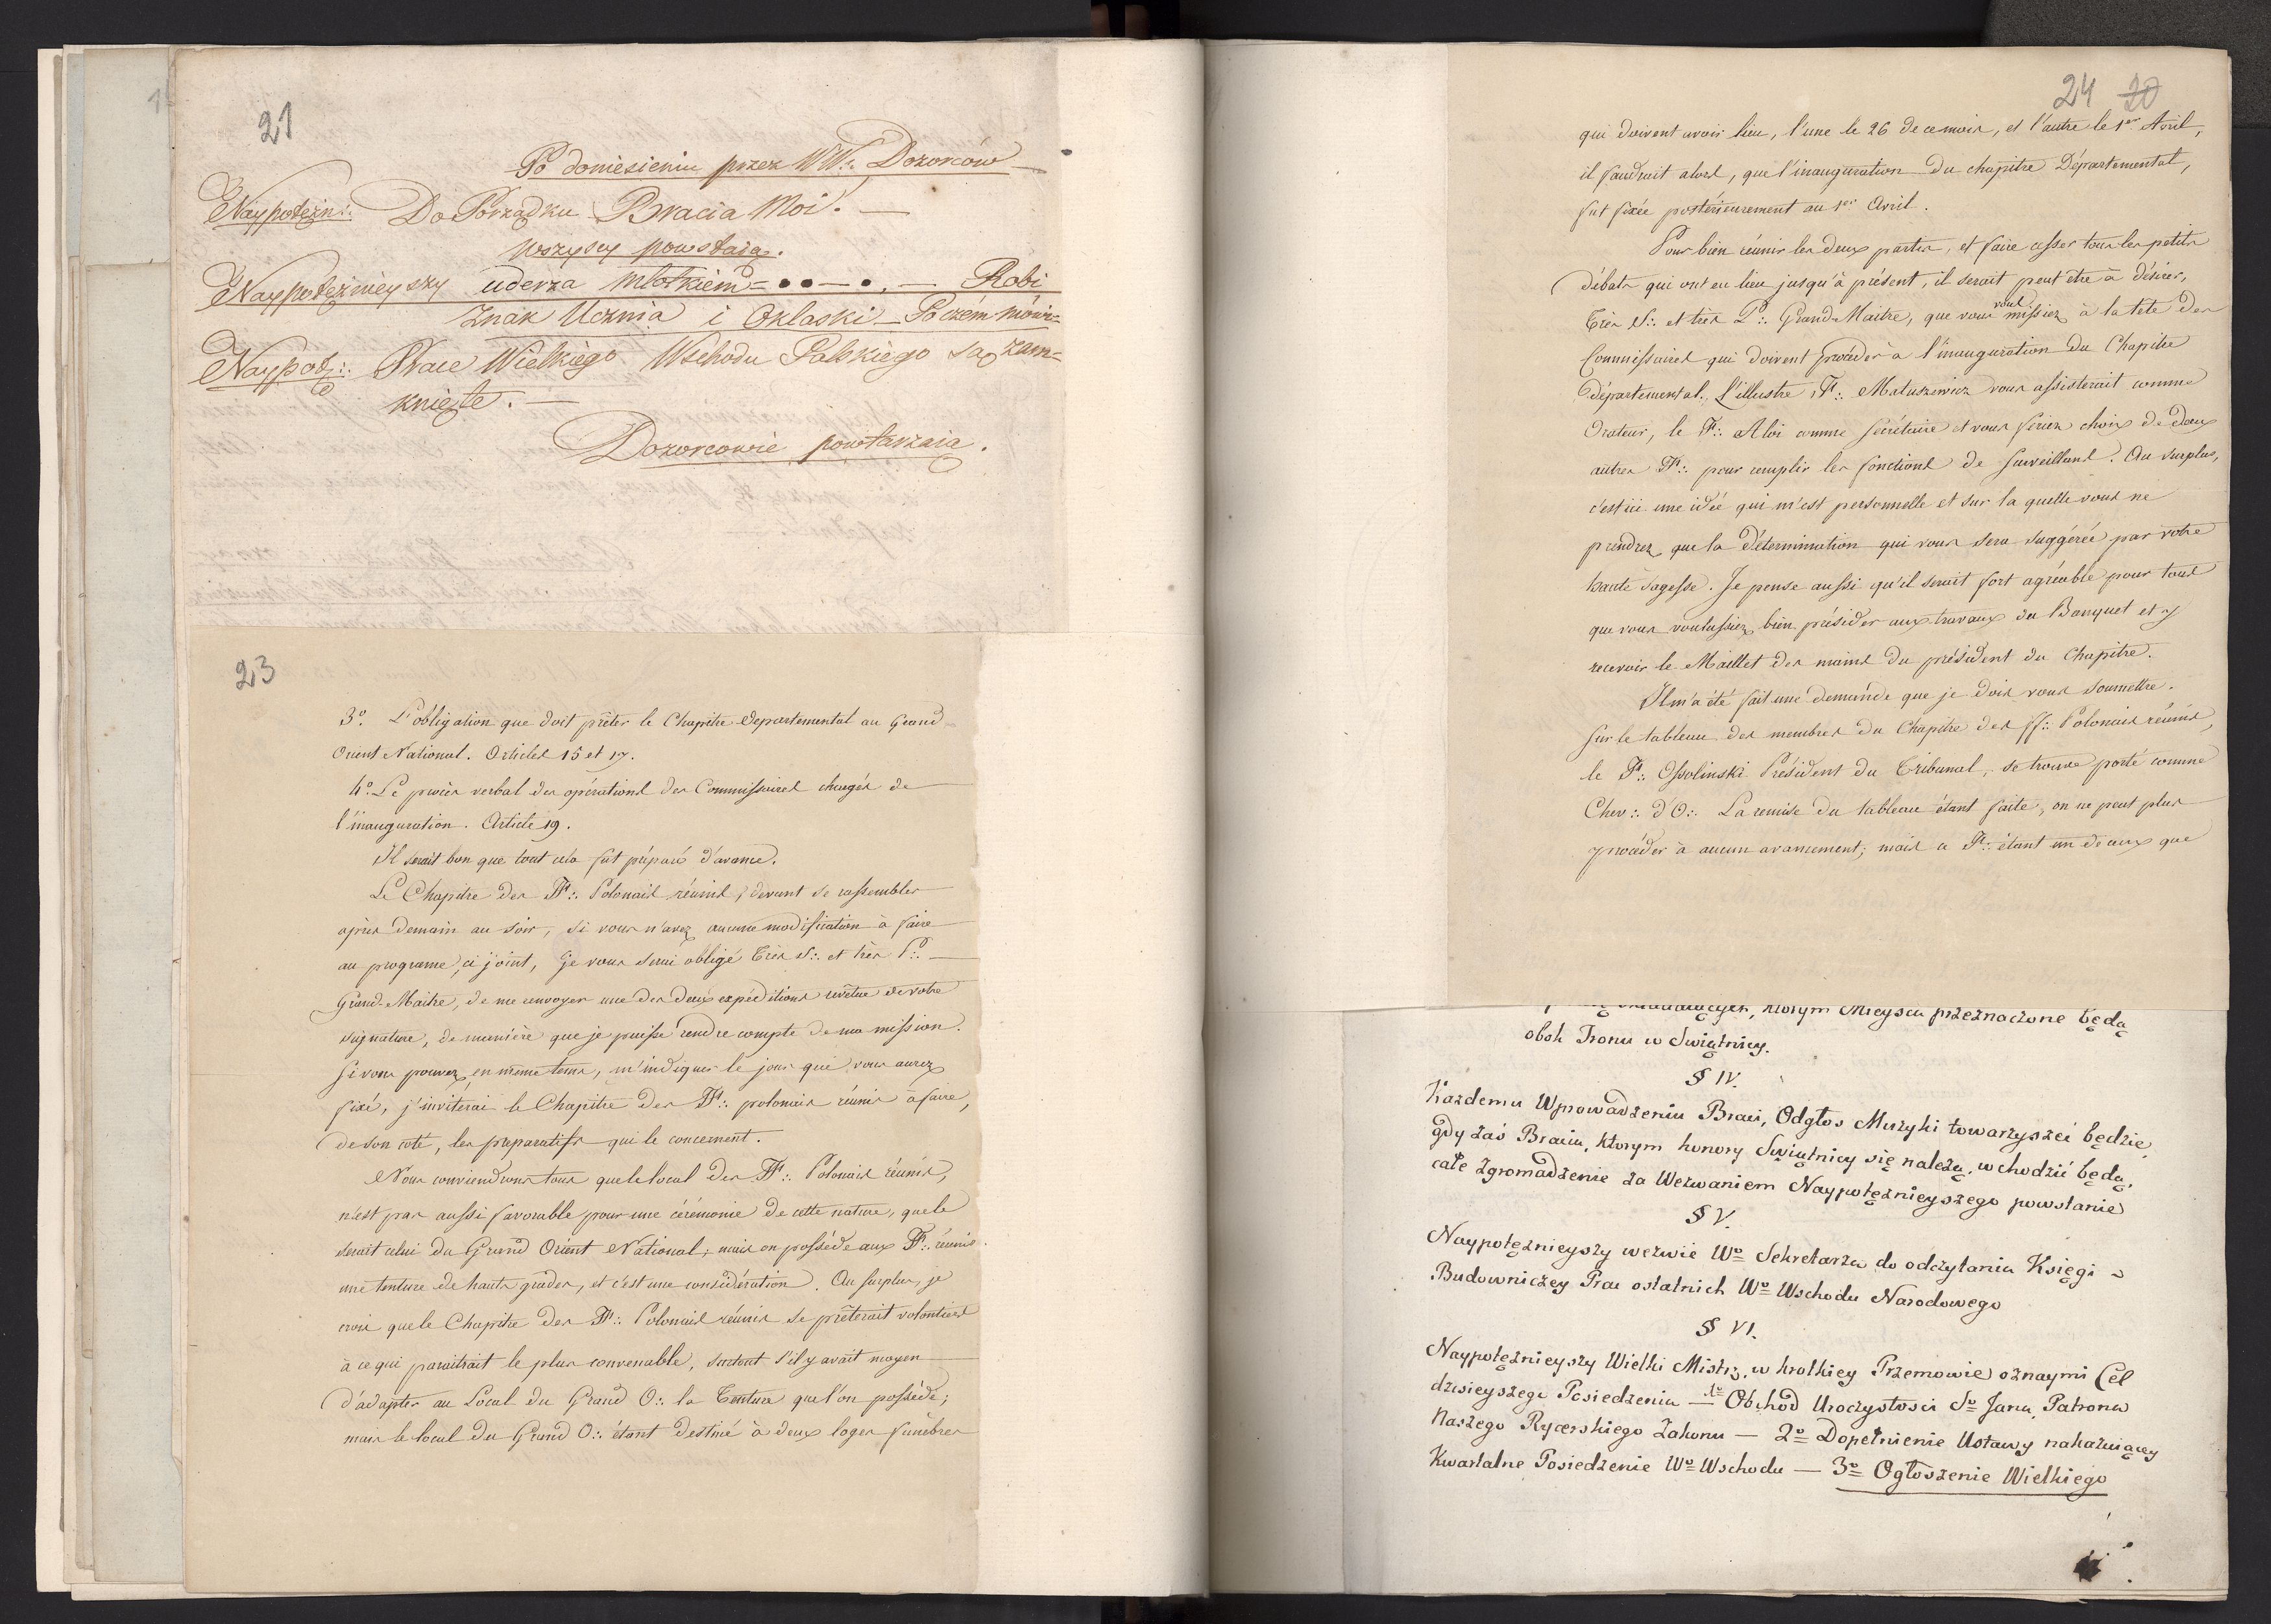 21
Po doniesieniu przez WW∴ Dozorców
Naypotężn∴ Do Porządku Bracia Moi. —
wszyscy powstaią.
Naypotężnieyszy uderza młotkiem = ●● — ●. — Robi
Znak Ucznia i Oklaski — Poczém mówi=
Naypotę∴ Prace Wielkiego Wschodu Polskiego są zam=
knięte. —
Dozorcowie powtarzaią.
23
3º. L'obligation que doit prêter le Chapitre departemental au Grand
Orient National. Articles 15 et 17.
4º. Le procès verbal des opérations des Commissaires chargés de
l'inauguration. Article 19.
Il serait bon que tout cela fut préparé d'avance.
Le Chapitre des FF∴ Polonais réunis, devant se rassembler
après demain au soir, si vous n'avez aucune modification à faire
au programe ci joint, je vous serai obligé Très S∴ et très P∴
Grand-Maitre, de me renvoyer une des deux expéditions revêtue de votre
signature, de manière que je puisse rendre compte de ma mission.
Si vous pouvez en même tems, m'indiquer le jour que vous aurez
fixé, j'inviterai le Chapitre des FF∴ polonais réunis à faire,
de son coté, les préparatifs qui le concernent.
Nous conviendrons tous que le local des FF∴ Polonais réunis,
n'est pas aussi favorable pour une cérémonie de cette nature, que le
serait celui du Grand Orient National; mais on possède aux FF∴ réunis
une tenture de hauts grades, et c'est une considération. Au surplus, je
crois que le Chapitre des FF∴ Polonais réunis se prêterait volontiers
à ce qui paraitrait le plus convenable, surtout s'il y avait moyen
d'adapter au Local du Grand O∴ la Tenture que l'on possède;
mais le local du Grand O∴ étant destiné à deux loges funèbres
24 20
qui doivent avoir lieu, l'une le 26 de ce mois, et l'autre le 1er Avril,
il faudrait alors, que l'inauguration du chapitre Départemental,
fut fixée postérieurement au 1er Avril.
Pour bien réunir les deux partis, et faire cesser tous les petits
débats qui ont eu lieu jusqu'à présent, il serait peut être à désirer,
Très S∴ et très P∴ Grand-Maitre, que vous vous missiez à la tête des
Commissaires qui doivent procéder à l'inauguration du Chapitre
départemental. l'illustre F∴ Matuszewicz vous assisterait comme
Orateur, le F∴ Aloi comme secrétaire et vous feriez choix de deux
autres FF∴ pour remplir les fonctions de surveillans. Au surplus,
c'est ici une idée qui m'est personnelle et sur la quelle vous ne
prendrez que la détermination qui vous sera suggérée par votre
haute sagesse. Je pense aussi qu'il serait fort agréable pour tous
que vous voulussiez bien présider aux travaux du Banquet et y
recevoir le Maillet des mains du président du Chapitre.
Il m'a été fait une demande que je dois vous soumettre.
Sur le tableau des membres du Chapitre des ff∴ Polonais réunis,
le F∴ Ossolinski Président du Tribunal, se trouve porté comme
Chev∴ d'O∴ La remise du tableau étant faite, on ne peut plus
procéder à aucun avancement; mais ce F∴ étant un de ceux que
którym Mieysca przeznaczone będą
obok Tronu w Swiątnicy.
§ IV.
Każdemu Wprowadzeniu Braci, Odgłos Muzyki towarzyszći będzie,
gdy zaś Bracia, którym honory Swiątnicy się należą, wchodzić będą,
całe zgromadzenie za Wezwaniem Naypotężnieyszego powstanie
§ V.
Naypotężnieyszy wezwie Wº Sekretarza do odczytania Księgi
Budowniczey Prac ostatnich Wº Wschodu Narodowego
§ VI.
Naypotężnieyszy Wielki Mistrz, w krotkiey Przemowie oznaymi Cel
dzisieyszego Posiedzenia — 1º Obchód Uroczystosci Sº Jana, Patrona
Naszego Rycerskiego Zakonu — 2º Dopełnienie Ustawy nakazuiącey
Kwartalne Posiedzenie Wº Wschodu — 3º Ogłoszenie Wielkiego